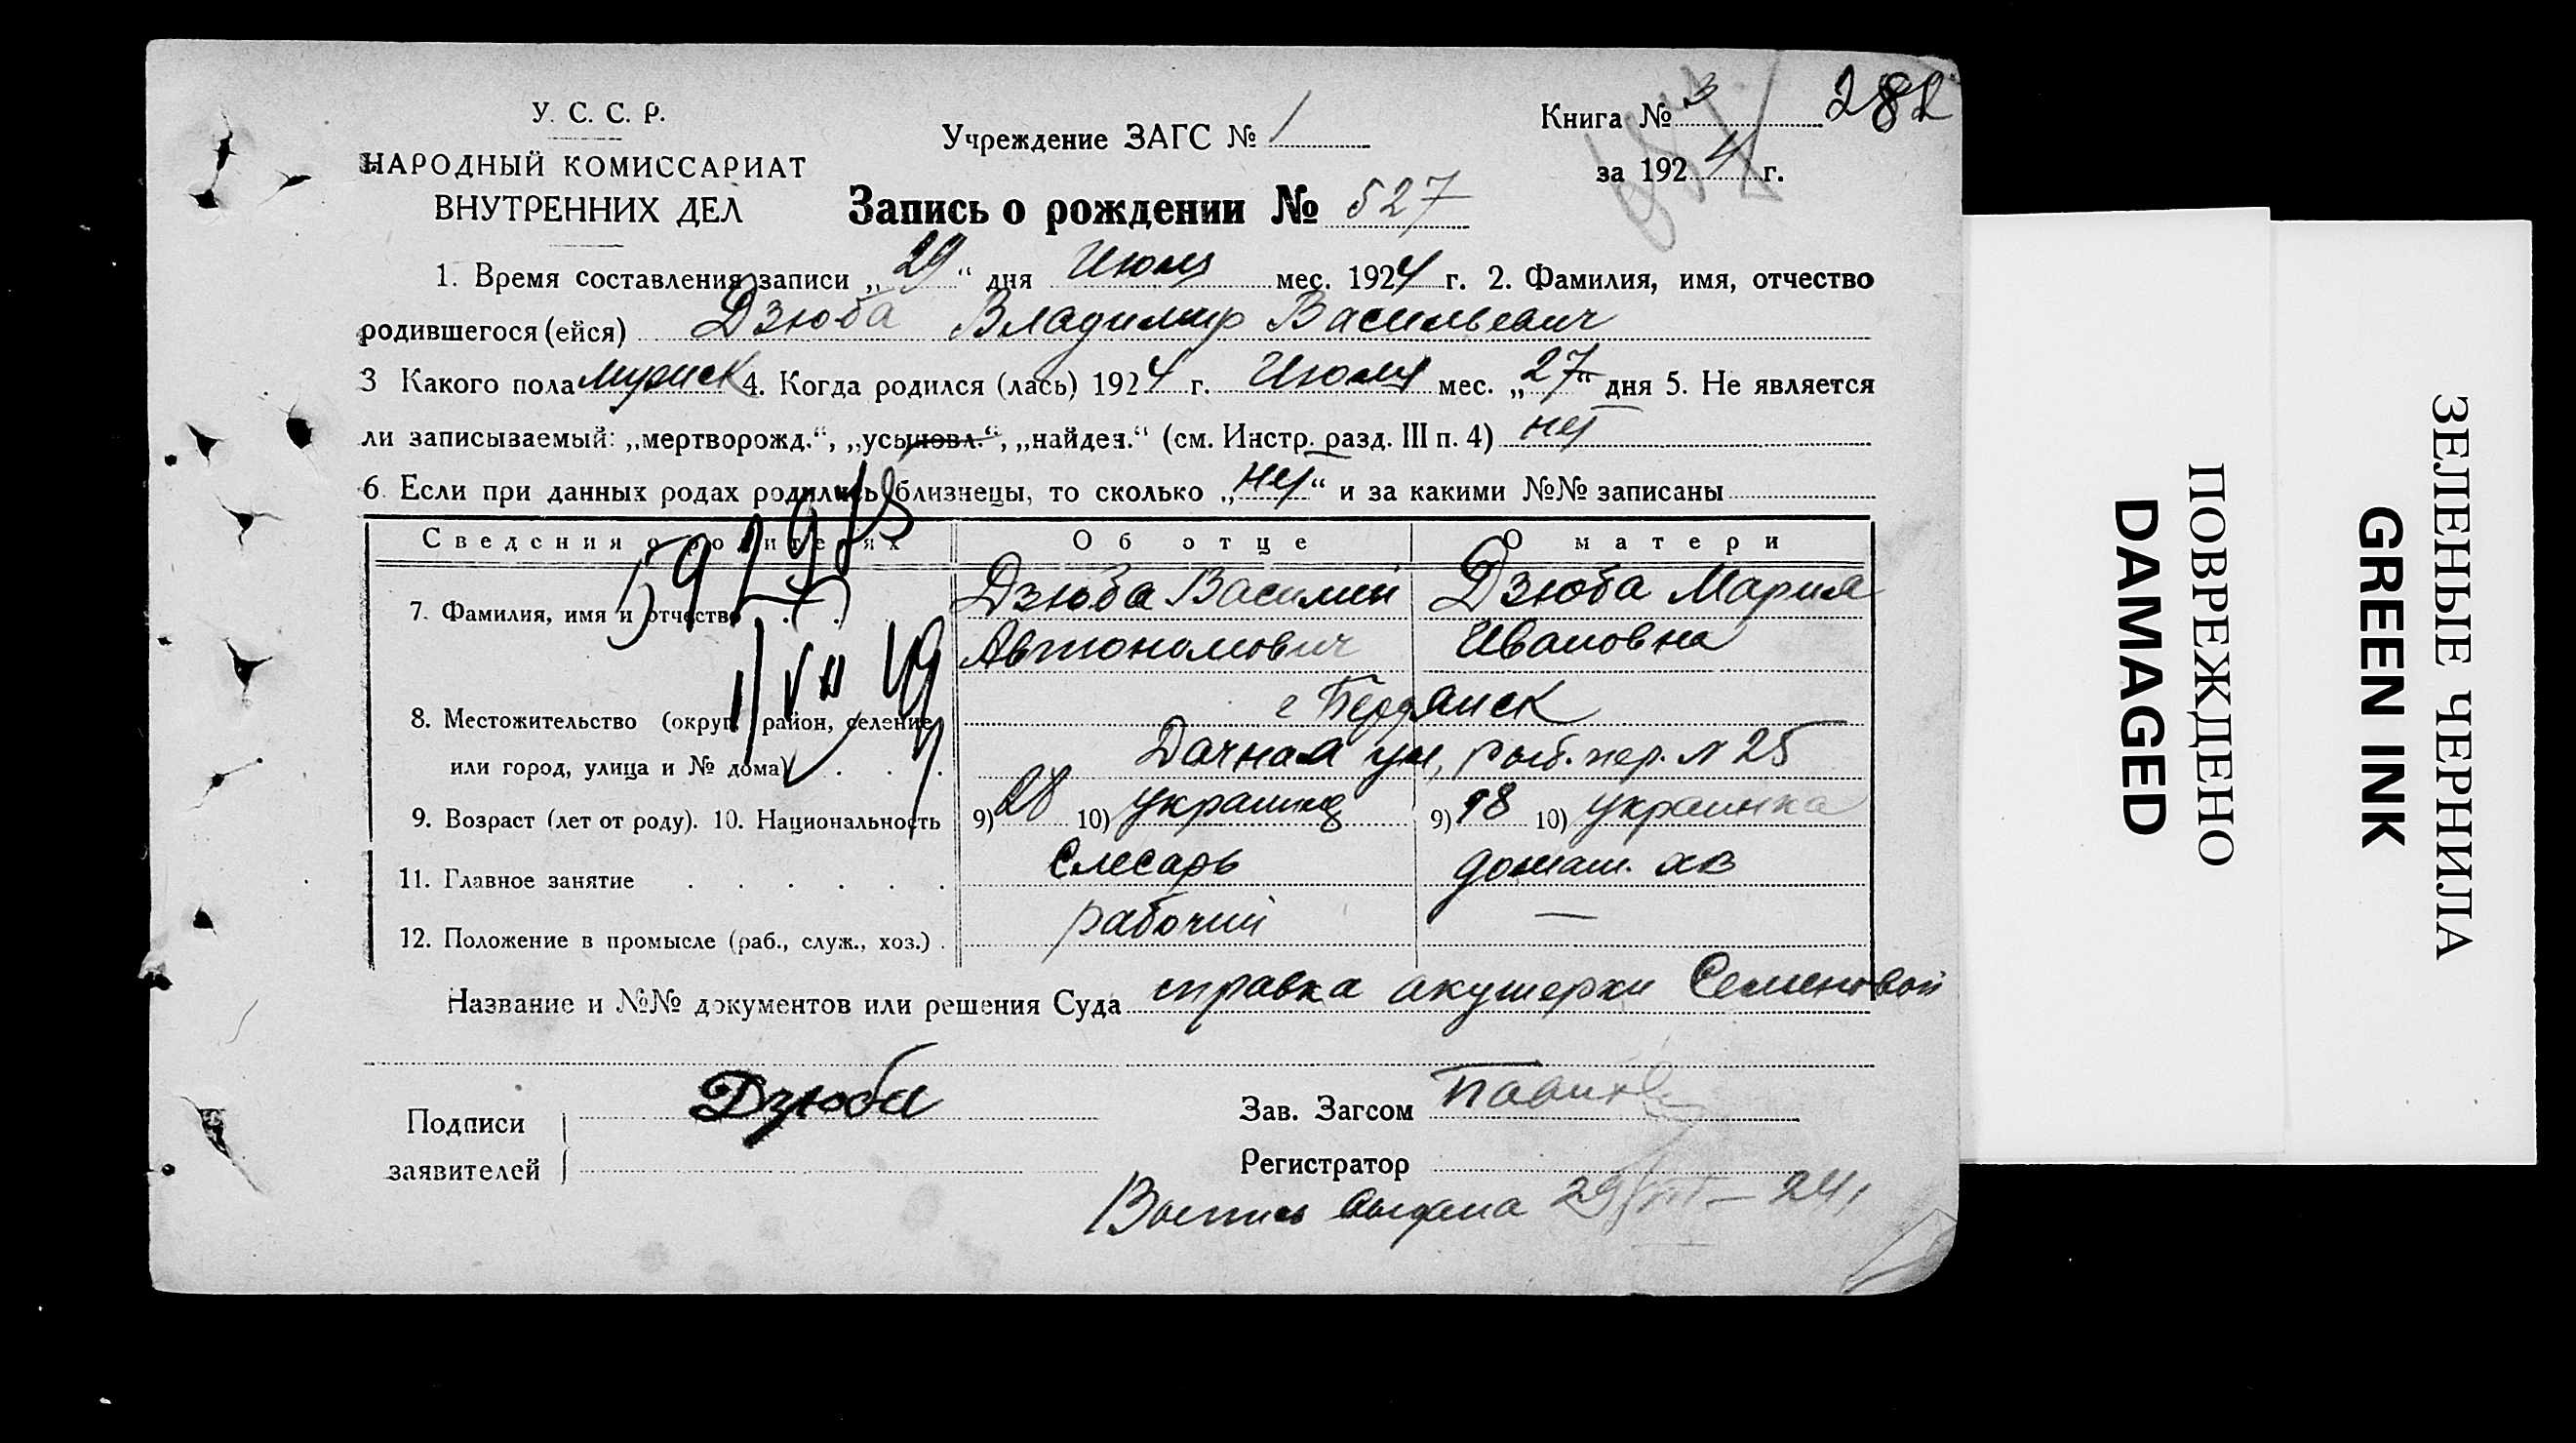 У. С. С. Р.
НАРОДНЫЙ КОМИССАРИАТ
ВНУТРЕННИХ ДЕЛ
Учреждение ЗАГС № 1
Книга № 3 282
за 1924 г.
Запись о рождении № 527
1. Время составления записи „29“ дня Июля мес. 1924 г. 2. Фамилия, имя, отчество
родившегося (ейся) Дзюба Владимир Васильевич
3 Какого пола мужск 4. Когда родился (лась) 1924 г. Июля мес. „27“ дня 5. Не является
ли записываемый: „мертворожд.“, „усыновл.“, „найден.“ (см. Инстр. разд. III п. 4) нет
6. Если при данных родах родились близнецы, то сколько „нет“ и за какими №№ записаны
Сведения о родителях Об отце О матери
7. Фамилия, имя и отчество Дзюба Василий Дзюба Мария
Автономович Ивановна
8. Местожительство (округ, район, селение г Бердянск
или город, улица и № дома) Дачная ул, рыб. пер. № 25
9. Возраст (лет от роду). 10. Национальность 9) 28 10) украинец 9) 18 10) украинка
11. Главное занятие Слесарь домаш. хоз
12. Положение в промысле (раб., служ., хоз.) рабочий —
Название и №№ документов или решения Суда справка акушерки Семеновой
Подписи
заявителей
Дзюба
Зав. Загсом
Регистратор
выдана 29/VII – 24,
ПОВРЕЖДЕНО
DAMAGED
ЗЕЛЕНЫЕ ЧЕРНИЛА
GREEN INK